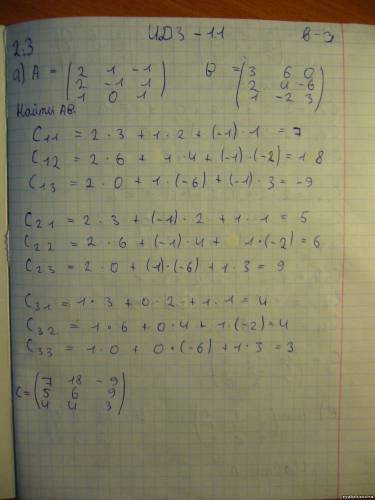 ИДЗ-11 в-9
2.3
а) A = (2 1 -1) B = (3 6 0)
(2 -1 1) (2 4 -6)
(1 0 1) (1 -2 3)
Найти AB.
C11 = 2·3 + 1·2 + (-1)·1 = 7
C12 = 2·6 + 1·4 + (-1)·(-2) = 18
C13 = 2·0 + 1·(-6) + (-1)·3 = -9
C21 = 2·3 + (-1)·2 + 1·1 = 5
C22 = 2·6 + (-1)·4 + 1·(-2) = 6
C23 = 2·0 + (1)·(-6) + 1·3 = 9
C31 = 1·3 + 0·2 + 1·1 = 4
C32 = 1·6 + 0·4 + 1·(-2) = 4
C33 = 1·0 + 0·(-6) + 1·3 = 3
C = (7 18 -9)
(5 6 9)
(4 4 3)